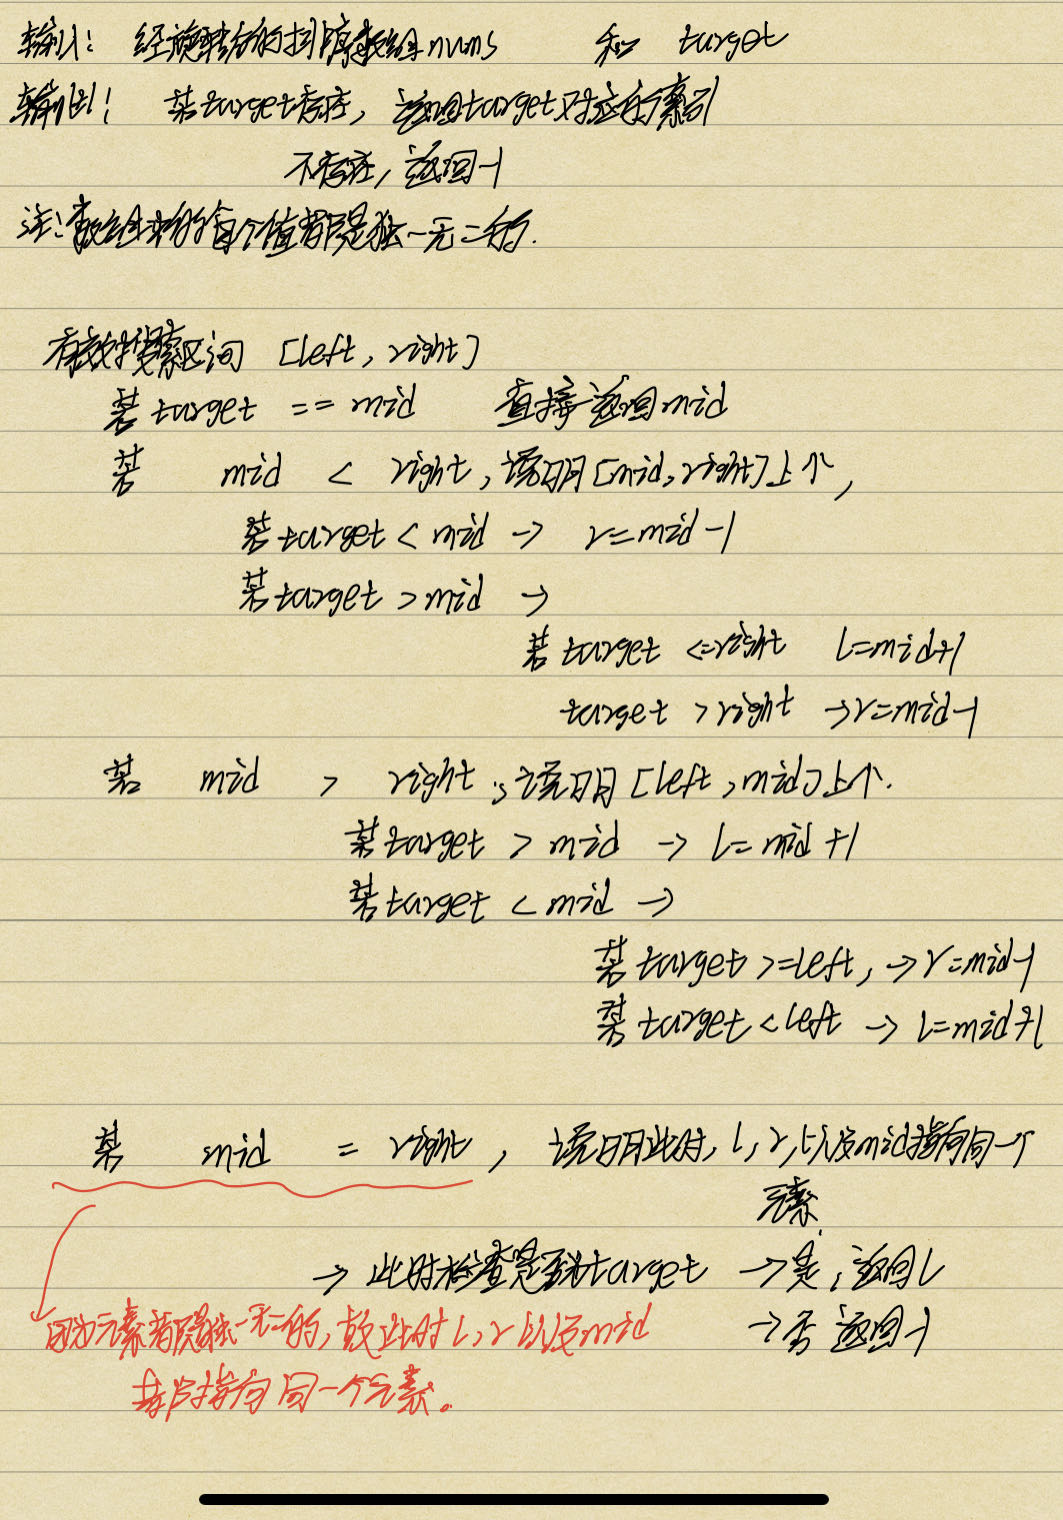 输入: 经旋转后的排序数组nums 和 target
输出: 若target存在, 返回target对应的索引
不存在, 返回-1
注: 数组中的每个值都是独一无二的.
有效搜索区间 [left, right]
若 target == mid 直接返回mid
若 mid < right, 说明[mid, right]上个,
若target < mid → r=mid-1
若target > mid →
若 target <=right l=mid+1
target >right →r=mid-1
若 mid > right, 说明 [left, mid]上个.
若target > mid → l= mid +1
若target < mid →
若 target >=left, → r=mid-1
若 target <left → l=mid+1
若 mid = right, 说明此时, l, r, 以及mid指向同一个
元素.
→ 此时检查是否为target →是, 返回l
→否 返回-1
因为元素都是独一无二的, 故此时 l, r 以及mid
都指向同一个元素。